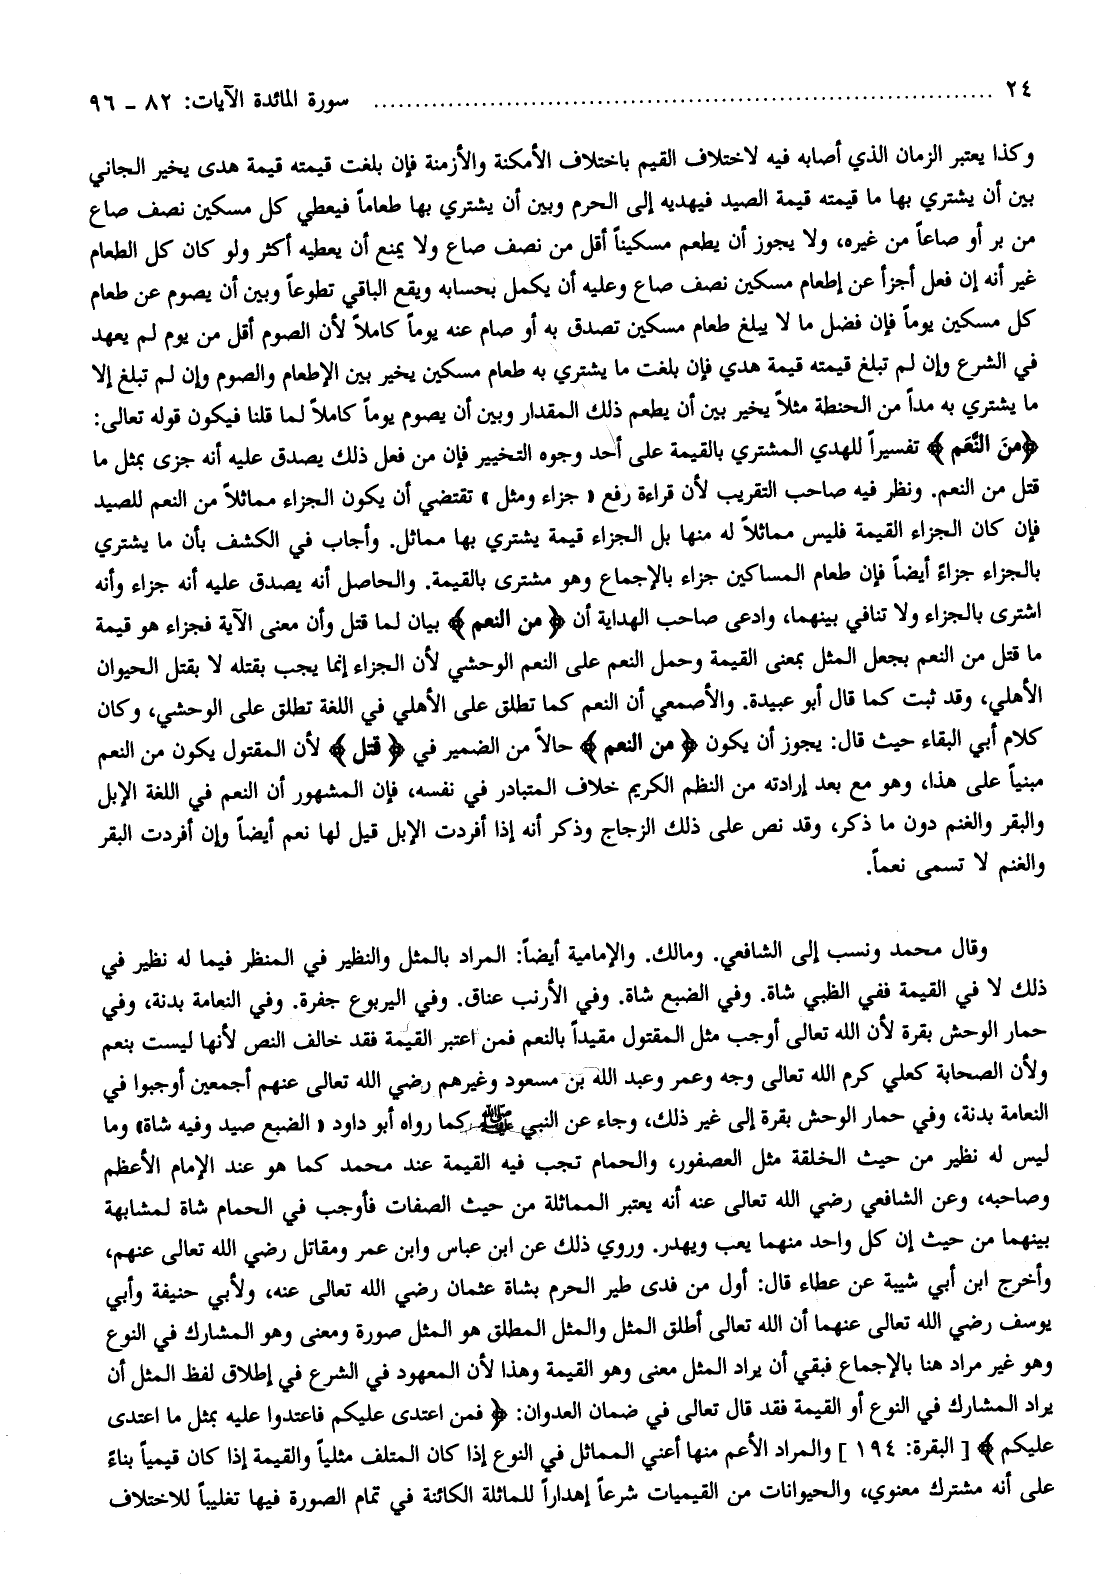 ٢٤ ........ سورة المائدة الآيات: ٨٢ - ٩٦
وكذا يعتبر الزمان الذي أصابه فيه لاختلاف القيم باختلاف الأمكنة والأزمنة فإن بلغت قيمته قيمة هدى يخير الجاني
بين أن يشتري بها ما قيمته قيمة الصيد فيهديه إلى الحرم وبين أن يشتري بها طعاماً فيعطي كل مسكين نصف صاع
من بر أو صاعاً من غيره، ولا يجوز أن يطعم مسكيناً أقل من نصف صاع ولا يمنع أن يعطيه أكثر ولو كان كل الطعام
غير أنه إن فعل أجزأ عن إطعام مسكين نصف صاع وعليه أن يكمل بحسابه ويقع الباقي تطوعاً وبين أن يصوم عن طعام
كل مسكين يوماً فإن فضل ما لا يبلغ طعام مسكين تصدق به أو صام عنه يوماً كاملاً لأن الصوم أقل من يوم لم يعهد
في الشرع وإن لم تبلغ قيمته قيمة هدي فإن بلغت ما يشتري به طعام مسكين يخير بين الإطعام والصوم وإن لم تبلغ إلا
ما يشتري به مداً من الحنطة مثلاً يخير بين أن يطعم ذلك المقدار وبين أن يصوم يوماً كاملاً لما قلنا فيكون قوله تعالى:
﴿منَ النَّعَم﴾ تفسيراً للهدي المشتري بالقيمة على أحد وجوه التخيير فإن من فعل ذلك يصدق عليه أنه جزى بمثل ما
قتل من النعم. ونظر فيه صاحب التقريب لأن قراءة رفع «جزاء ومثل» تقتضي أن يكون الجزاء مماثلاً من النعم للصيد
فإن كان الجزاء القيمة فليس مماثلاً له منها بل الجزاء قيمة يشتري بها مماثل. وأجاب في الكشف بأن ما يشتري
بالجزاء جزاءً أيضاً فإن طعام المساكين جزاء بالإجماع وهو مشترى بالقيمة. والحاصل أنه يصدق عليه أنه جزاء وأنه
اشترى بالجزاء ولا تنافي بينهما، وادعى صاحب الهداية أن ﴿من النعم﴾ بيان لما قتل وأن معنى الآية فجزاء هو قيمة
ما قتل من النعم بجعل المثل بمعنى القيمة وحمل النعم على النعم الوحشي لأن الجزاء إنما يجب بقتله لا بقتل الحيوان
الأهلي، وقد ثبت كما قال أبو عبيدة. والأصمعي أن النعم كما تطلق على الأهلي في اللغة تطلق على الوحشي، وكان
كلام أبي البقاء حيث قال: يجوز أن يكون ﴿من النعم﴾ حالاً من الضمير في ﴿قتل﴾ لأن المقتول يكون من النعم
مبنياً على هذا، وهو مع بعد إرادته من النظم الكريم خلاف المتبادر في نفسه، فإن المشهور أن النعم في اللغة الإبل
والبقر والغنم دون ما ذكر، وقد نص على ذلك الزجاج وذكر أنه إذا أفردت الإبل قيل لها نعم أيضاً وإن أفردت البقر
والغنم لا تسمى نعماً.
وقال محمد ونسب إلى الشافعي. ومالك. والإمامية أيضاً: المراد بالمثل والنظير في المنظر فيما له نظير في
ذلك لا في القيمة ففي الظبي شاة. وفي الضبع شاة. وفي الأرنب عناق. وفي اليربوع جفرة. وفي النعامة بدنة، وفي
حمار الوحش بقرة لأن الله تعالى أوجب مثل المقتول مقيداً بالنعم فمن اعتبر القيمة فقد خالف النص لأنها ليست بنعم
ولأن الصحابة كعلي كرم الله تعالى وجه وعمر وعبد الله بن مسعود وغيرهم رضي الله تعالى عنهم أجمعين أوجبوا في
النعامة بدنة، وفي حمار الوحش بقرة إلى غير ذلك، وجاء عن النبي ﷺ كما رواه أبو داود «الضبع صيد وفيه شاة» وما
ليس له نظير من حيث الخلقة مثل العصفور، والحمام تجب فيه القيمة عند محمد كما هو عند الإمام الأعظم
وصاحبه، وعن الشافعي رضي الله تعالى عنه أنه يعتبر المماثلة من حيث الصفات فأوجب في الحمام شاة لمشابهة
بينهما من حيث إن كل واحد منهما يعب ويهدر. وروي ذلك عن ابن عباس وابن عمر ومقاتل رضي الله تعالى عنهم،
وأخرج ابن أبي شيبة عن عطاء قال: أول من فدى طير الحرم بشاة عثمان رضي الله تعالى عنه، ولأبي حنيفة وأبي
يوسف رضي الله تعالى عنهما أن الله تعالى أطلق المثل والمثل المطلق هو المثل صورة ومعنى وهو المشارك في النوع
وهو غير مراد هنا بالإجماع فبقي أن يراد المثل معنى وهو القيمة وهذا لأن المعهود في الشرع في إطلاق لفظ المثل أن
يراد المشارك في النوع أو القيمة فقد قال تعالى في ضمان العدوان: ﴿فمن اعتدى عليكم فاعتدوا عليه بمثل ما اعتدى
عليكم﴾ [البقرة: ١٩٤] والمراد الأعم منها أعني المماثل في النوع إذا كان المتلف مثلياً والقيمة إذا كان قيمياً بناءً
على أنه مشترك معنوي، والحيوانات من القيميات شرعاً إهداراً للماثلة الكائنة في تمام الصورة فيها تغليباً للاختلاف